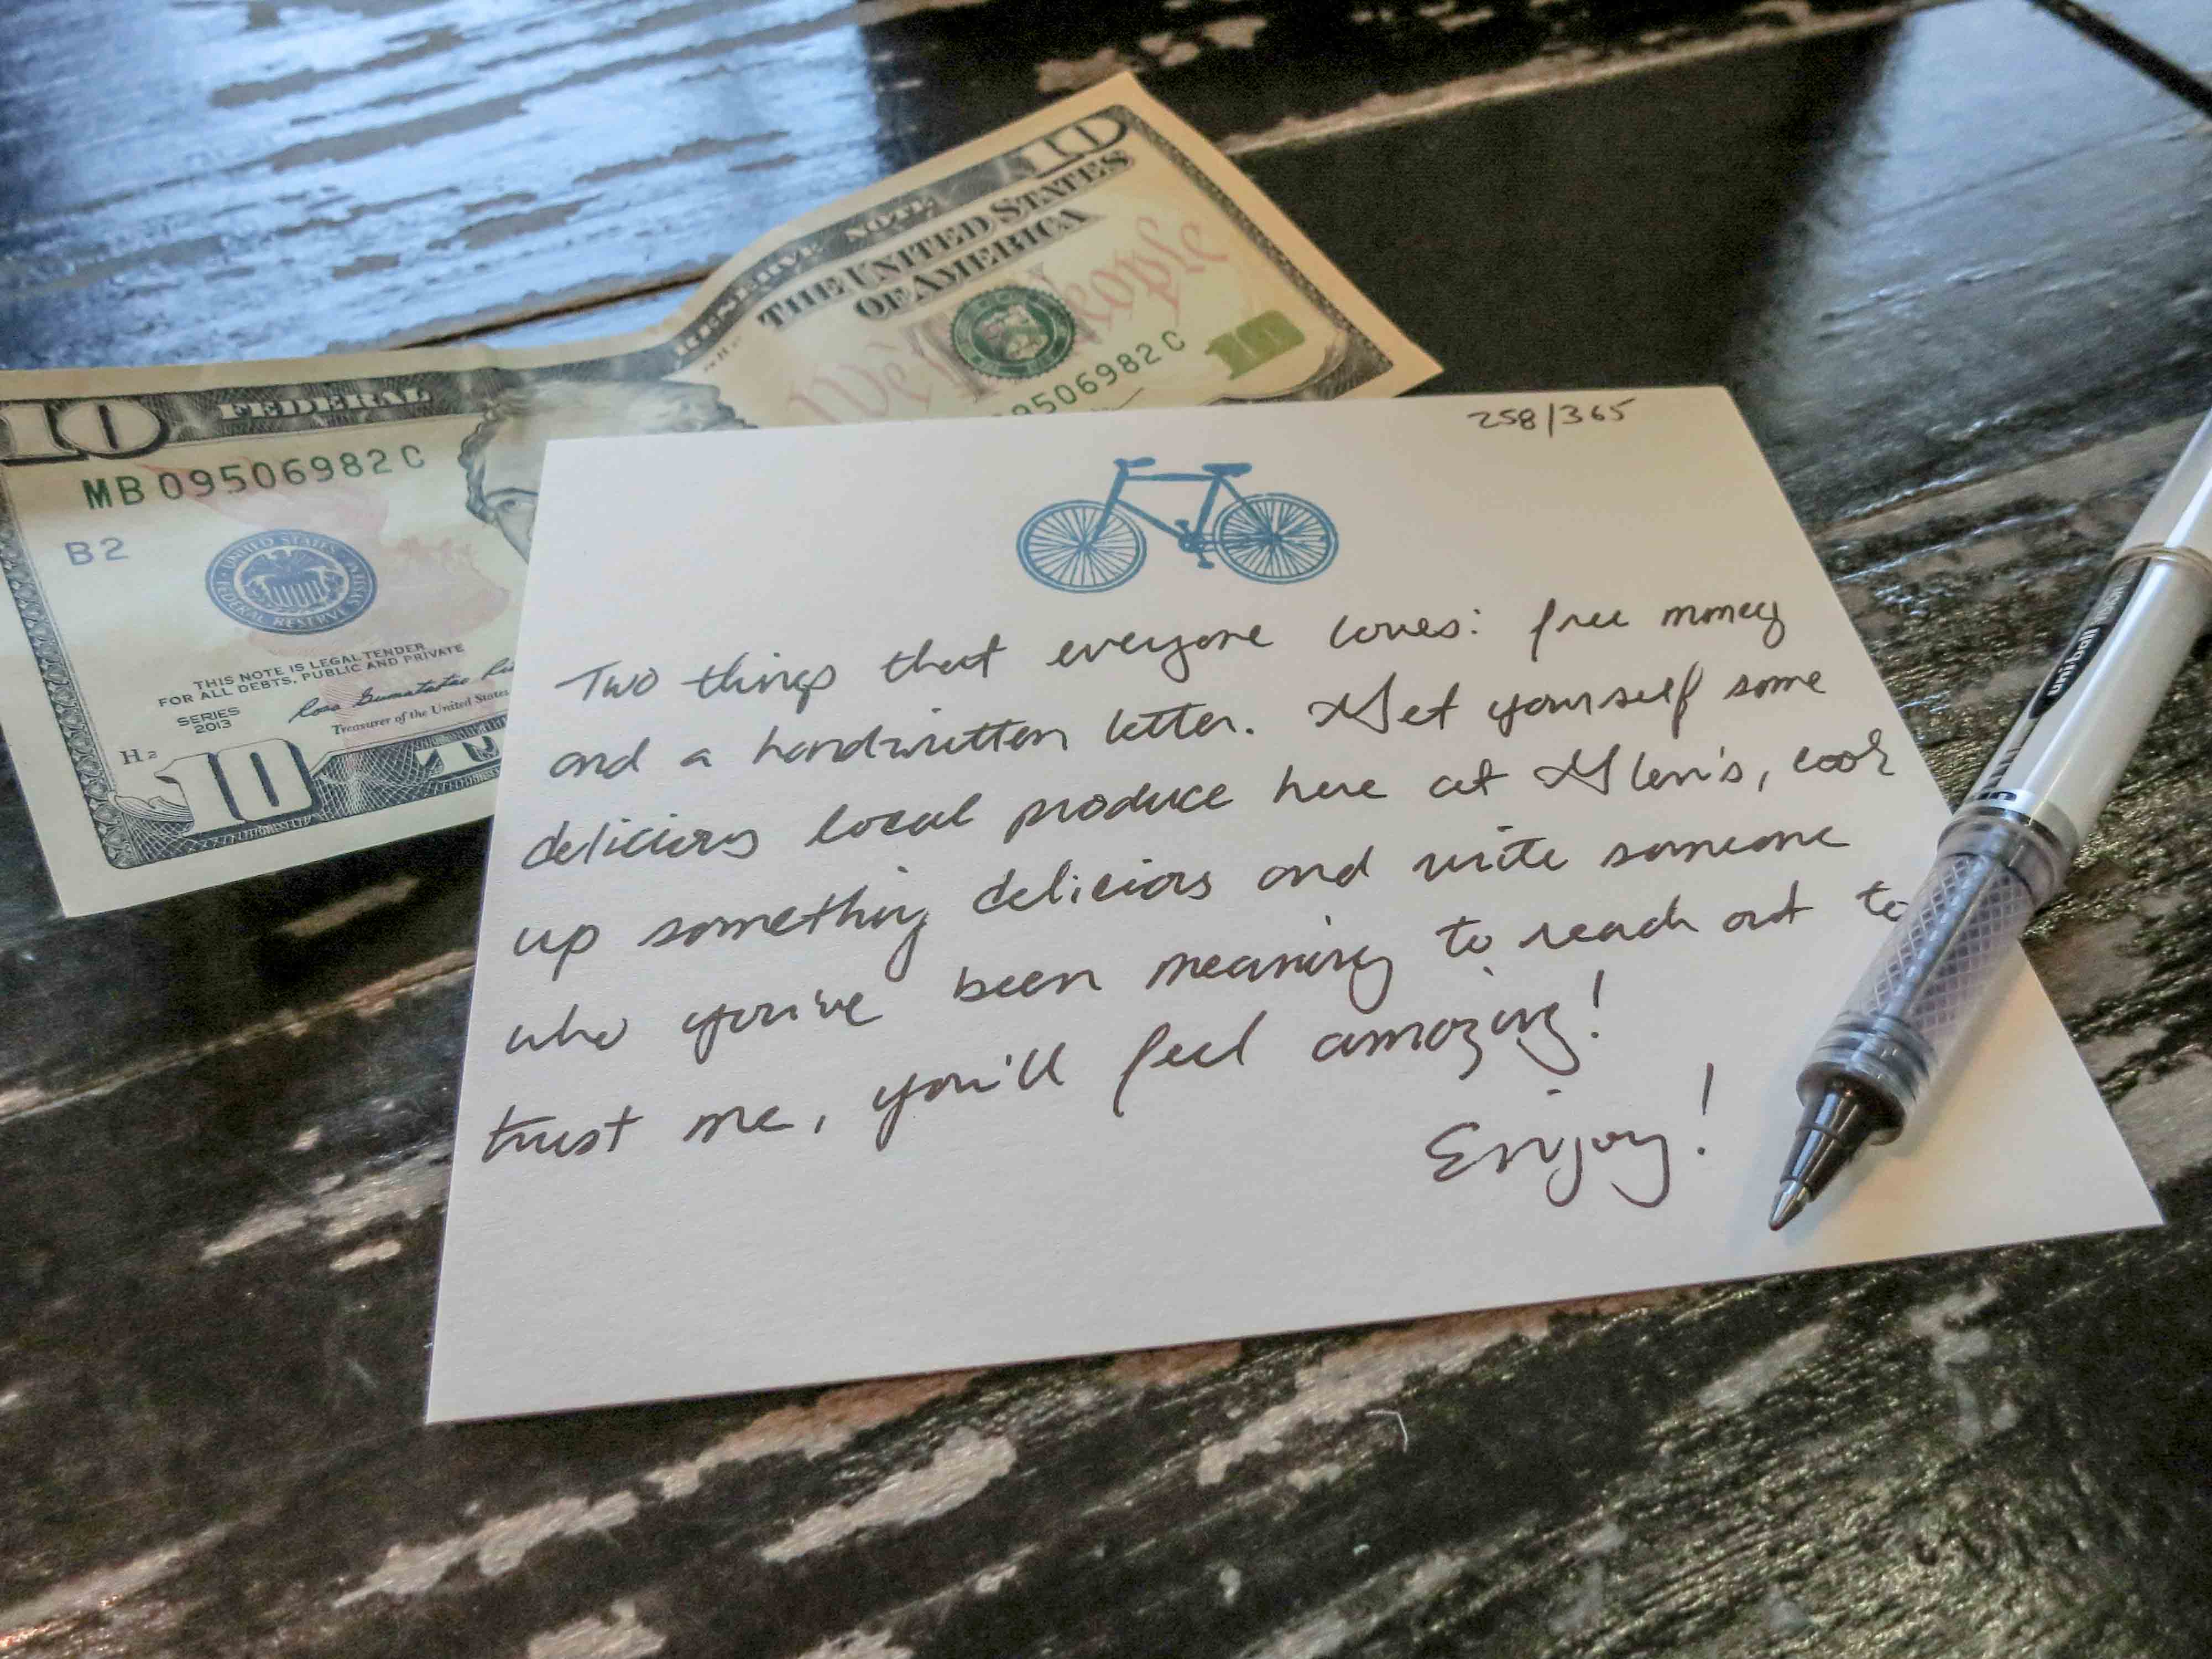 10
FEDERAL RESERVE NOTE
10
THE UNITED STATES
OF AMERICA
We The People
MB 09506982 C
09506982 C
10
B2
UNITED STATES FEDERAL RESERVE SYSTEM
THIS NOTE IS LEGAL TENDER
FOR ALL DEBTS, PUBLIC AND PRIVATE
SERIES
2013
Treasurer of the United States
H2
10
258/365
Two things that everyone loves: free money
and a handwritten letter. Get yourself some
delicious local produce here at Glen's, cook
up something delicious and write someone
who you've been meaning to reach out to
trust me, you'll feel amazing!
Enjoy!
uni-ball